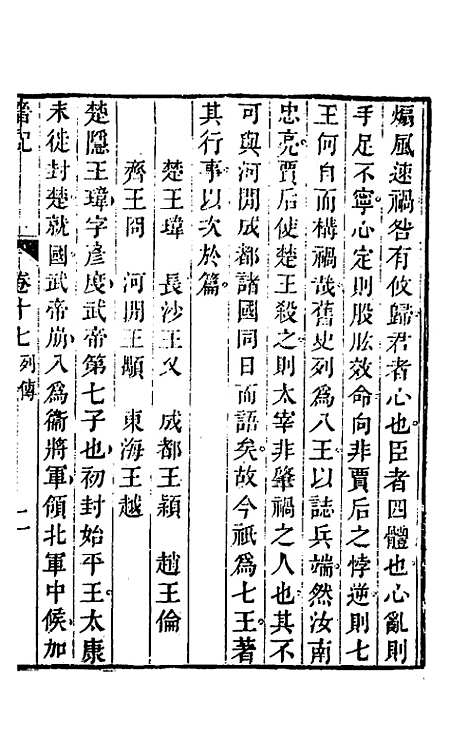 煽風速禍咎有攸歸君者心也臣者四體也心亂則
手足不寧心定則股肱效命向非賈后之悖逆則七
王何自而構禍哉舊史列爲八王以誌兵端然汝南
忠亮賈后使楚王殺之則太宰非肇禍之人也其不
可與河間成都諸國同日而語矣故今祇爲七王著
其行事以次於篇
楚王瑋 長沙王乂 成都王穎 趙王倫
齊王冏 河間王顒 東海王越
楚隱王瑋字彥度武帝第七子也初封始平王太康
末徙封楚就國武帝崩入爲衞將軍領北軍中候加
晉記 卷十七 列傳 二